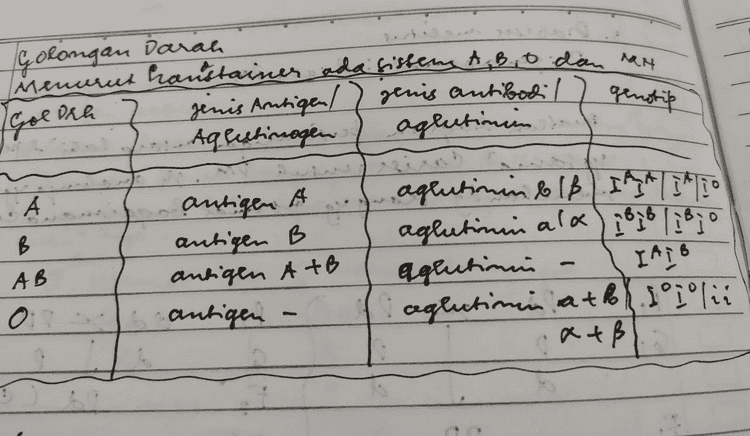 Golongan Darah
Menurut Lanstainer ada sistem A, B, O dan MN
Gol Drh | jenis Antigen/ Aglutinogen | jenis antibodi/ aglutinin | genotip
A | antigen A | aglutinin b/β | IᴬIᴬ/Iᴬ/I⁰
B | antigen B | aglutinin a/α | IᴮIᴮ/IᴮI⁰
AB | antigen A+B | aglutinin - | IᴬIᴮ
O | antigen - | aglutinin a+b | I⁰I⁰/ii
α+β